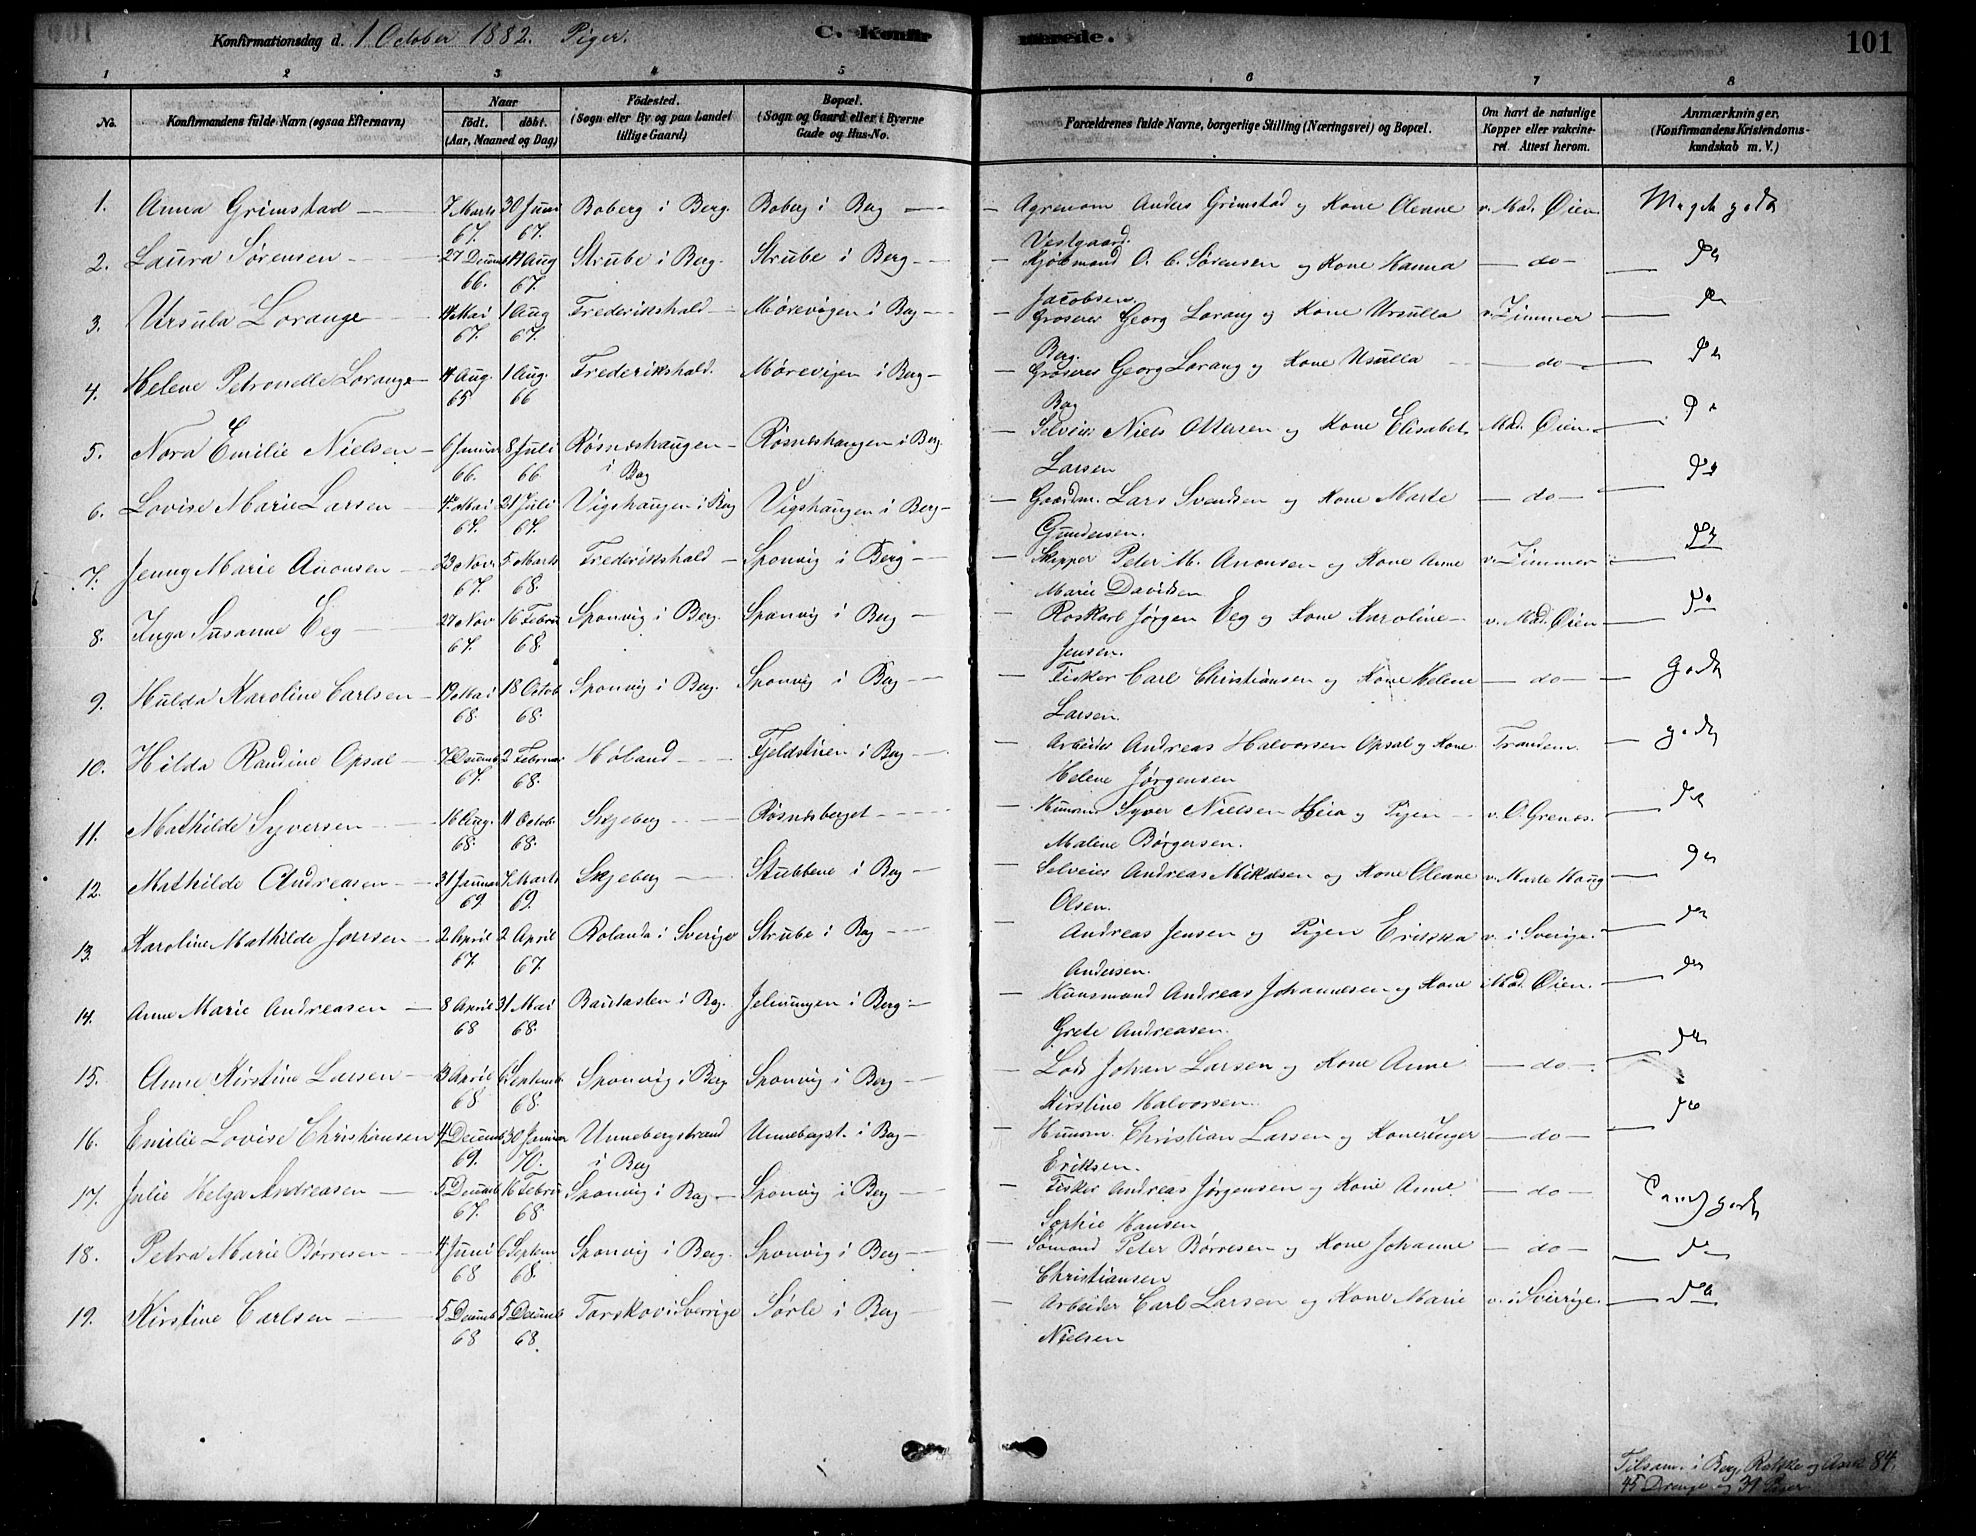 Konfirmationsdag d. 1 October 1882. Piger. C. Konfirmerede. 101
1 2 3 4 5 6 7 8
No. Konfirmandens fulde Navn (ogsaa Efternavn) Naar födt. döbt. (Aar, Maaned og Dag) Födested. (Sogn eller By og paa Landet tillige Gaard) Bopæl. (Sogn og Gaard eller i Byerne Gade og Hus-No. Forældrenes fulde Navne, borgerlige Stilling (Næringsvei) og Bopæl. Om havt de naturlige Kopper eller vakcineret. Attest herom. Anmærkninger. (Konfirmandens Kristendomskundskab m. V.)
1. Anna Grimstad 7 Marts 67. 30 Juni 67. Boberg i Berg. Boberg i Berg Agronom Anders Grimstad og Kone Oleane Vestgaard. v. Mad. Øien Meget godt
2. Laura Sørensen 27 Decemb 66. 14 Aug 67. Strube i Berg. Strube i Berg Kjøbmand O. C. Sørensen og Kone Hanna Jacobsen do
3. Ursula Lorange 14 Mai 67. 1 Aug 67. Frederikshald Mørevigen i Berg Groserer Georg Lorang og Kone Ursulla Berg. v. Zimmer
4. Helene Petronelle Lorange 4 Aug. 65 1 Aug. 66 Frederikshald. Mørevigen i Berg Groserer Georg Lorang og Kone Usulla Berg do
5. Nora Emilie Nielsen 6 Januar 66. 8 Juli 66. Røsneshaugen i Berg Røsneshaugen i Berg Selveier Niels Ottersen og Kone Elisabet Larsen Mad. Øien
6. Lovise Marie Larsen 4 Mai 67. 21 Juli 67. Vigshaugen i Berg Vigshaugen i Berg Gaardm. Lars Svendsen og Kone Marte Gundersen. do
7. Jenny Marie Anonsen 23 Novr 67. 5 Marts 68. Frederikshald Sponvig i Berg Skipper Peter M. Anonsen og Kone Anne Marie Davidsen v. Zimmer
8. Inga Susanne Eeg 27 Nov 67. 16 Febru 68. Sponvig i Berg. Sponvig i Berg Roskarl Jørgen Eeg og Kone Karoline Jensen. v. Mad. Øien
9. Hulda Karoline Carlsen 19 Mai 68. 18 Octob 68. Sponvig i Berg. Sponvig i Berg Fisker Carl Christiansen og Kone Helene Larsen. do godt
10. Hilda Randine Opsal 7 Decemb 67. 2 Februar 68. Høland Fjeldstuen i Berg Arbeider Andreas Halvorsen Opsal og Kone Helene Jørgensen Trandem godt
11. Mathilde Syversen 16 Aug. 68. 11 Octob 68. Skjeberg Røsnesberget Husm Syver Nielsen Heia og Pigen Malene Børgersen. v. O. Grenes.
12. Mathilde Andreasen 31 Januar 69 7 Marts 69. Skjeberg Stubbene i Berg Selveier Andreas Mikelsen og Kone Oleane Olsen. v. Marte Haug
13. Karoline Mathilde Jensen 2 April 67. 2 April 67. Rolanda i Sverige Strube i Berg Andreas Jensen og Pigen Erikka Andersen. v. i Sverige.
14. Anne Marie Andreasen 8 April 68 31 Mai 68. Bautasten i Berg. Jelinungen i Berg Husmand Andreas Johannesen og Kone Grete Andreasen. Mad. Øien.
15. Anne Kirstine Larsen 3 April 68 6 Septemb. 68. Sponvig i Berg Sponvig i Berg Lods Johan Larsen og Kone Anne Kirstine Halvorsen. do
16. Emilie Lovise Christiansen 4 Decemb 69. 30 Januar 70. Unnebergstrand i Berg Unnebergst. i Berg Husm. Christian Larsen og Kone Inger Eriksen. do
17. Julie Helga Andreasen 5 Decemb 67. 16 Febru 68. Sponvig i Berg Sponvig i Berg Fisker Andreas Jørgensen og Kone Anne Sophie Hansen do godt
18. Petra Marie Børresen 4 Juni 68 6 Septem 68. Sponvig i Berg. Sponvig i Berg Sømand Peter Børresen og Kone Johanne Christiansen do
19. Kirstine Carlsen 5 Decemb 68 5 Decemb 68. Torskov i Sverrige Sørle i Berg Arbeider Carl Larsen og Kone Marie Nielsen v. i Sverrige.
Tilsam. i Berg, Rokke og Asak 84.
45 Drenge og 39 Piger